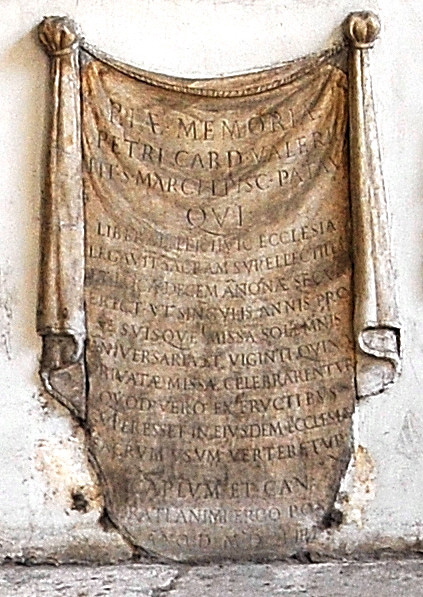 PIÆ MEMORIÆ
PETRI CARD VALERI
TIT·S·MARCI·EPISC·PATAV
QVI
LIBERAL PER HVIC ECCLESIA
LEGAVIT SACRAM SVPELLECTILE
DECEM ANONÆ
ERECT VT SINGVLIS ANNIS PRO
SVISQVE MISSA SOLEMNIS
NIVERSARIA ET VIGINTI QVIN
RIVATÆ MISSÆ CELEBRARENTVR
QVOD VERO EX FRVCTIBVS
TERESSET IN EJVSDEM ECCLESIÆ
VSVM VERTERETVR
CAPLVM ET CAN
GRATI ANIMI ERGO POS